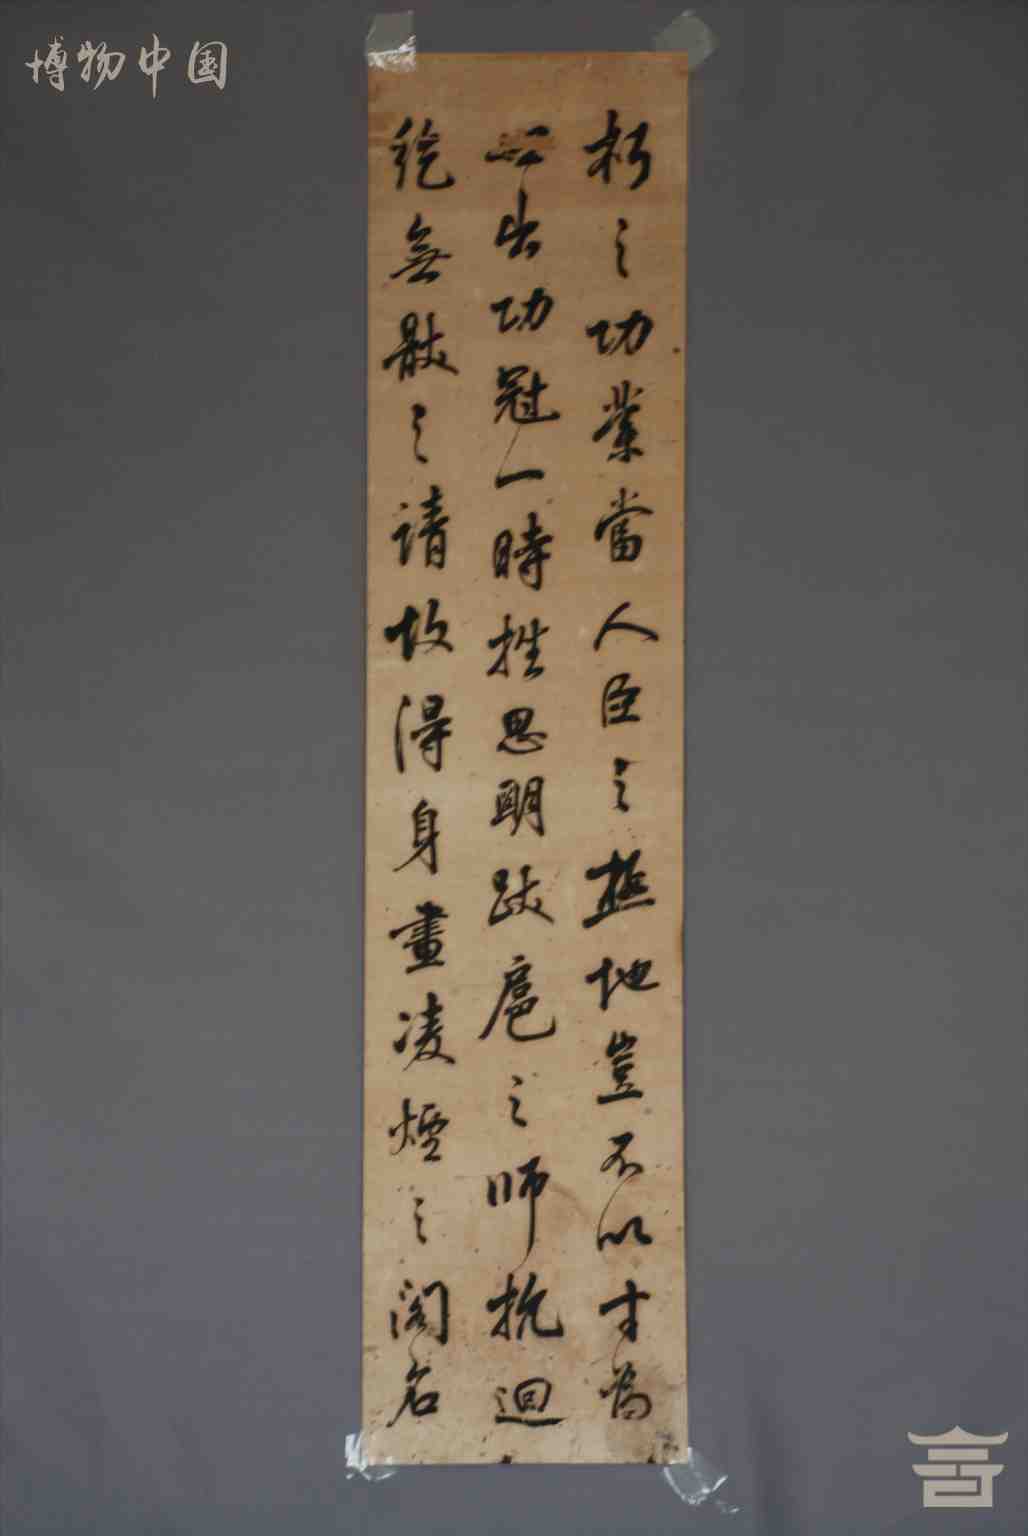 博物中国
朽之功業當人臣之極地豈不以才為
世出功冠一時挫思明跋扈之師抗迴
紇無猒之請故得身畫凌煙之閣名